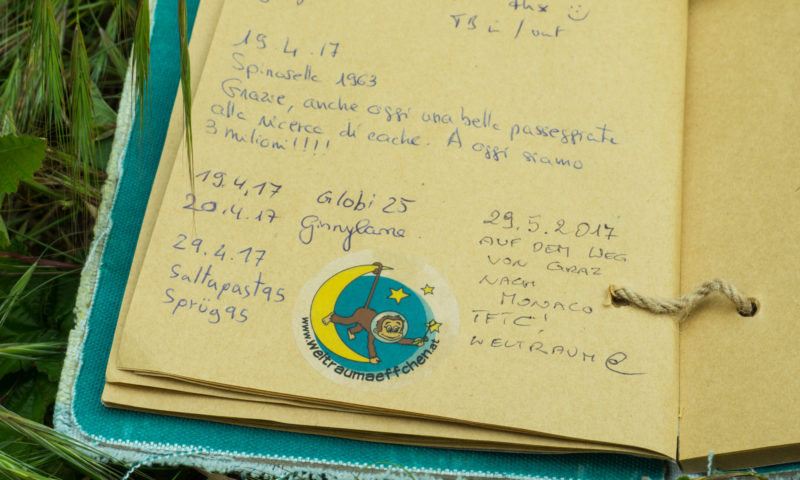 thx ☺
TB in / out
19.4.17
Spinosella 1963
Grazie, anche oggi una bella passeggiata
alla ricerca di cache. A oggi siamo
3 milioni!!!!
19.4.17 Globi 25
20.4.17 Ginnylane
29.4.17
Saltapasta95
Sprög95
www.weltraumaeffchen.at
29.5.2017
AUF DEM WEG
VON GRAZ
NACH
MONACO
TFTC!
WELTRAUM@